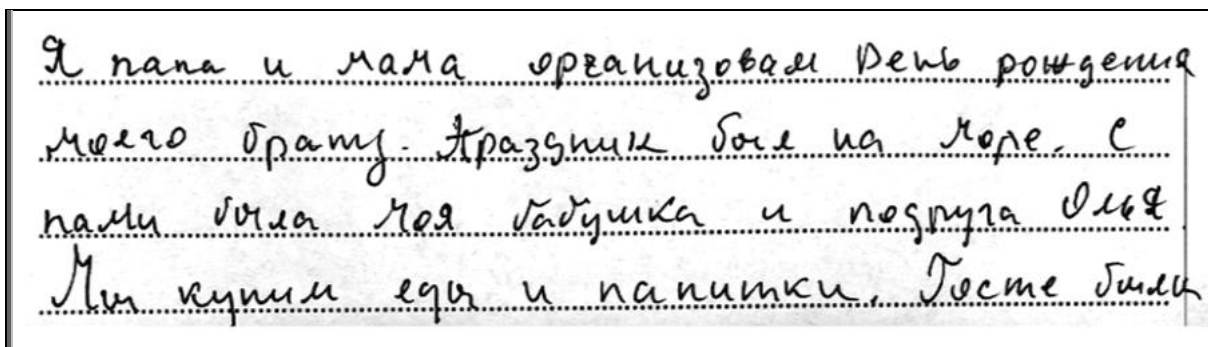 Я папа и мама организовам День рождения
моего брату. Праздник был на море. С
нами была моя бабушка и подруга Олья
Мы купим еды и папитки. Госте были